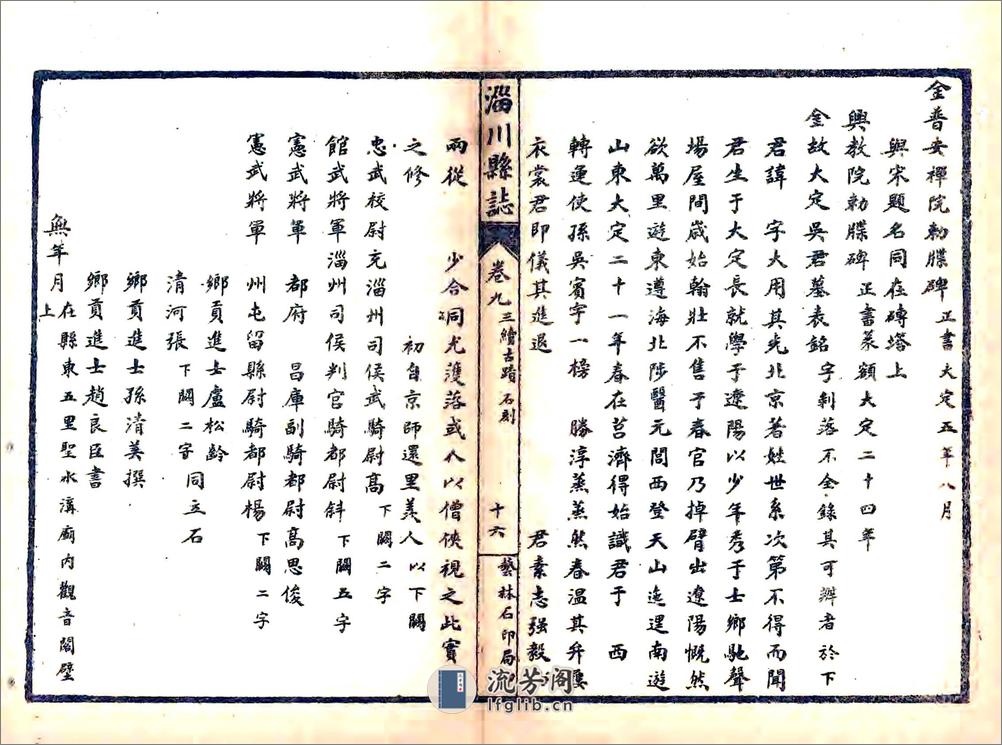 金普安禪院勅牒碑 正書大定五年八月
與宋題名同在磚塔上
興教院勅牒碑 正書篆額大定二十四年
金故大定吳君墓表銘 字剥落不全錄其可辨者於下
君諱 字大用其先北京著姓世系次第不得而聞
君生于大定長就學于遼陽以少年秀于士鄉馳聲
場屋間歲始翰壯不售于春官乃掉臂出遼陽慨然
欲萬里遊東遵海北陟醫元閭西登天山迤邐南遊
山東大定二十一年春在莒濟得始識君于 西
轉運使孫吳賓宇一榜 勝淳蒸蒸然春溫其升屢
衣裳君即儀其進退 君素志强毅
淄川縣誌
卷九 三續古蹟 石刻
十六
藝林石印局
兩從 少合同尤濩落或人以僧俠視之此實
之修 初自京師還里羨人以下闕
忠武校尉充淄州司侯武騎尉高 下闕二字
館武將軍淄州司侯判官騎都尉斜 下闕五字
憲武將軍 都府 昌庫副騎都尉高思俊
憲武將軍 州屯留縣尉騎都尉楊 下闕二字
鄉貢進士盧松齡
清河張 下闕二字 同立石
鄉貢進士孫清美撰
鄉貢進士趙良臣書
無年月 在縣東五里聖水溝廟内觀音閣壁上
流芳阁
lfglib.cn